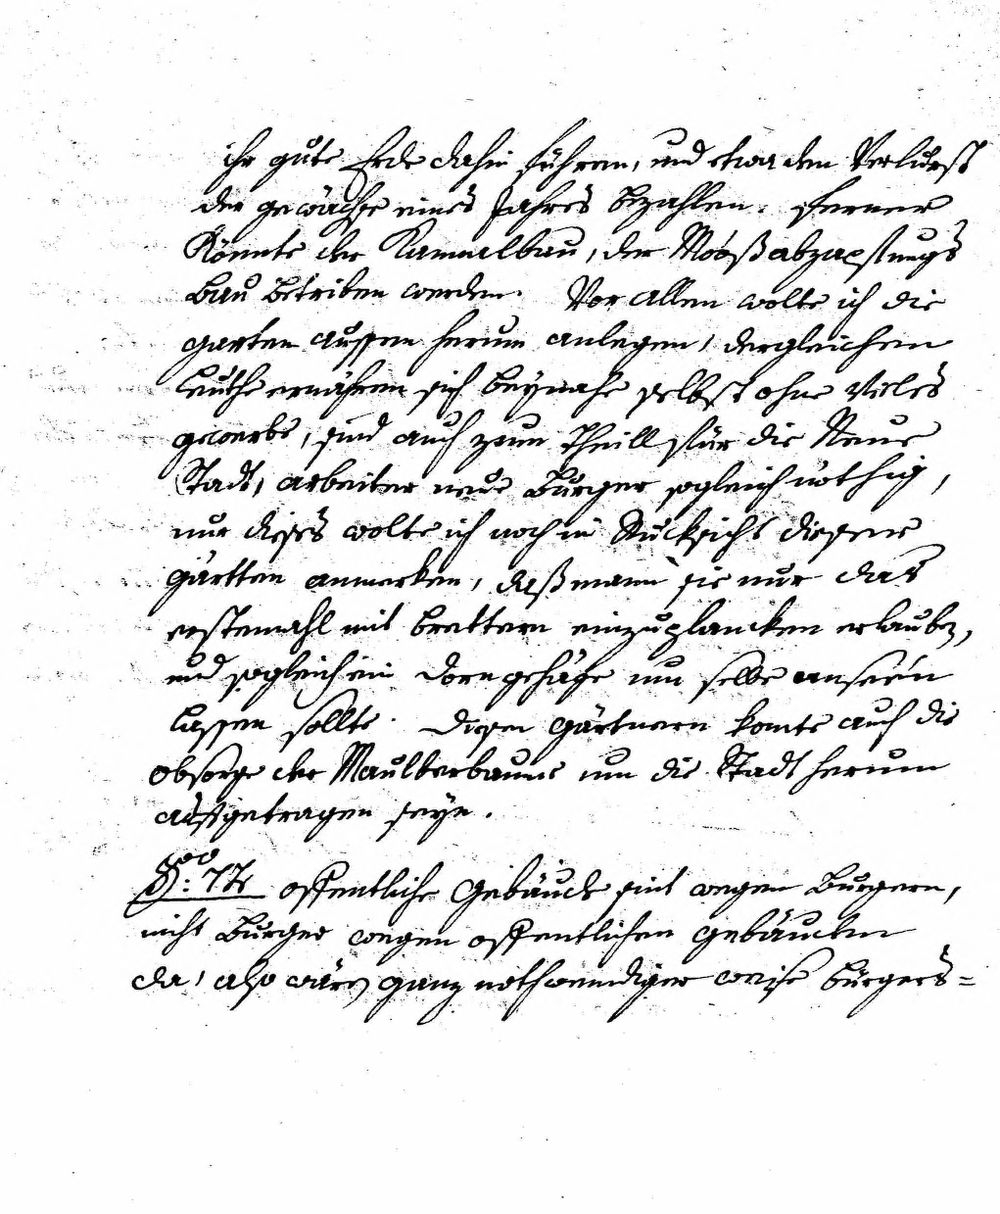 ihr gute Erde dahin führen, und etwa den Verlurst
der gewächse eines Jahres bezahlen. ferner
könnte der Kannalbau, der Moosabzapfungs
bau betriben werden. Vor allen wolte ich die
garten aussen herum anlegen, dergleichen
leuthe ernähren sich beynahe selbst ohne vieles
gewerbe, sind auch zum Theill für die Neue
Stadt, arbeiter neue Burger sogleich nöthig,
nur dieses wolte ich noch in Rücksicht diesene
gärtten anmerken, daß mann sie nur das
erstemahl mit brettern einzuplancken erlauben,
und sogleich ein dorngehäge um selbe anseen
lassen sollte. diesen gärtnern konte auch die
obsorge der Maulberbaume um die Stadt herum
aufgetragen seyn.
§: 77 offentliche gebäude sint wegen Burgern,
nicht Burger wegen offentlichen gebäuden
da, also wären ganz nothwendiger weise bürgers=